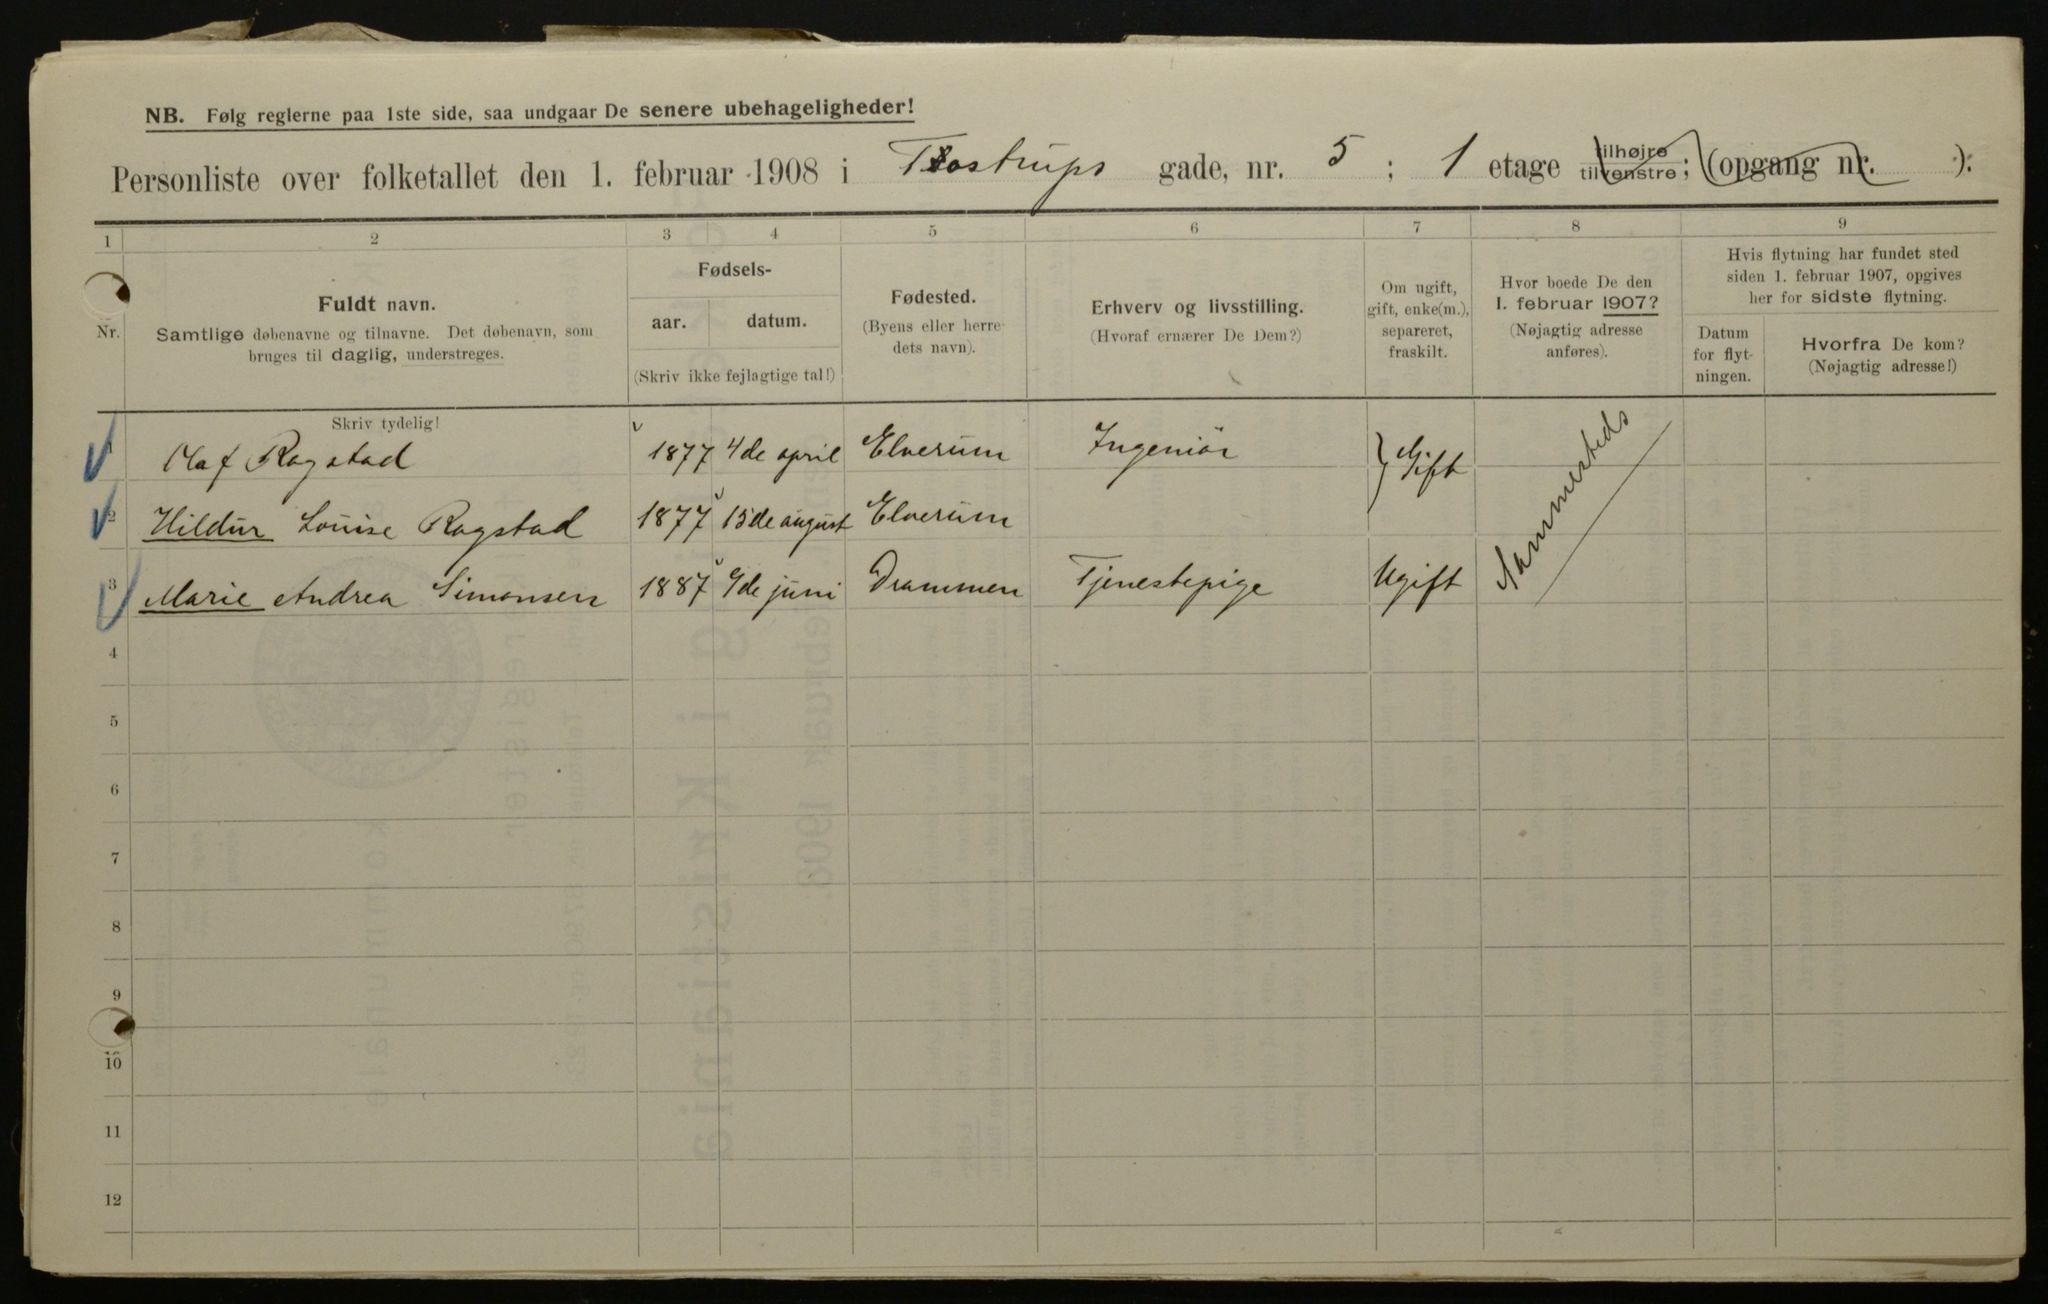 NB. Følg reglerne paa 1ste side, saa undgaar De senere ubehageligheder!
Personliste over folketallet den 1. februar 1908 i Tostrups gade, nr. 5 ; 1 etage tilhøjre tilvenstre ; (opgang nr. ).
1 2 3 4 5 6 7 8 9
Nr.
Fuldt navn.
Samtlige døbenavne og tilnavne. Det døbenavn, som
bruges til daglig, understreges.
Fødsels-
aar. datum.
(Skriv ikke fejlagtige tal!)
Fødested.
(Byens eller herre-
dets navn).
Erhverv og livsstilling.
(Hvoraf ernærer De Dem?)
Om ugift,
gift, enke(m.),
separeret,
fraskilt.
Hvor boede De den
1. februar 1907?
(Nøjagtig adresse
anføres).
Hvis flytning har fundet sted
siden 1. februar 1907, opgives
her for sidste flytning.
Datum
for flyt-
ningen.
Hvorfra De kom?
(Nøjagtig adresse!)
Skriv tydelig!
1 Olaf Rogstad 1877 4de april Elverum Ingeniør Gift
2 Hildur Louise Rogstad 1877 15de august Elverum
3 Marie Andrea Simonsen 1887 9de juni Drammen Tjenestepige Ugift
Sammesteds
4
5
6
7
8
9
10
11
12